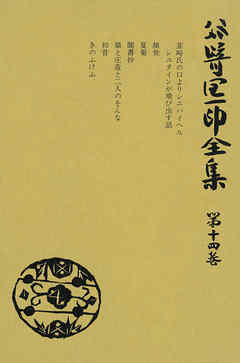 谷崎潤一郎全集
第十四巻
韮崎氏の口よりシユパイヘル
シユタインが飛び出す話
顔世
夏菊
聞書抄
猫と庄造と二人のをんな
初昔
きのふけふ